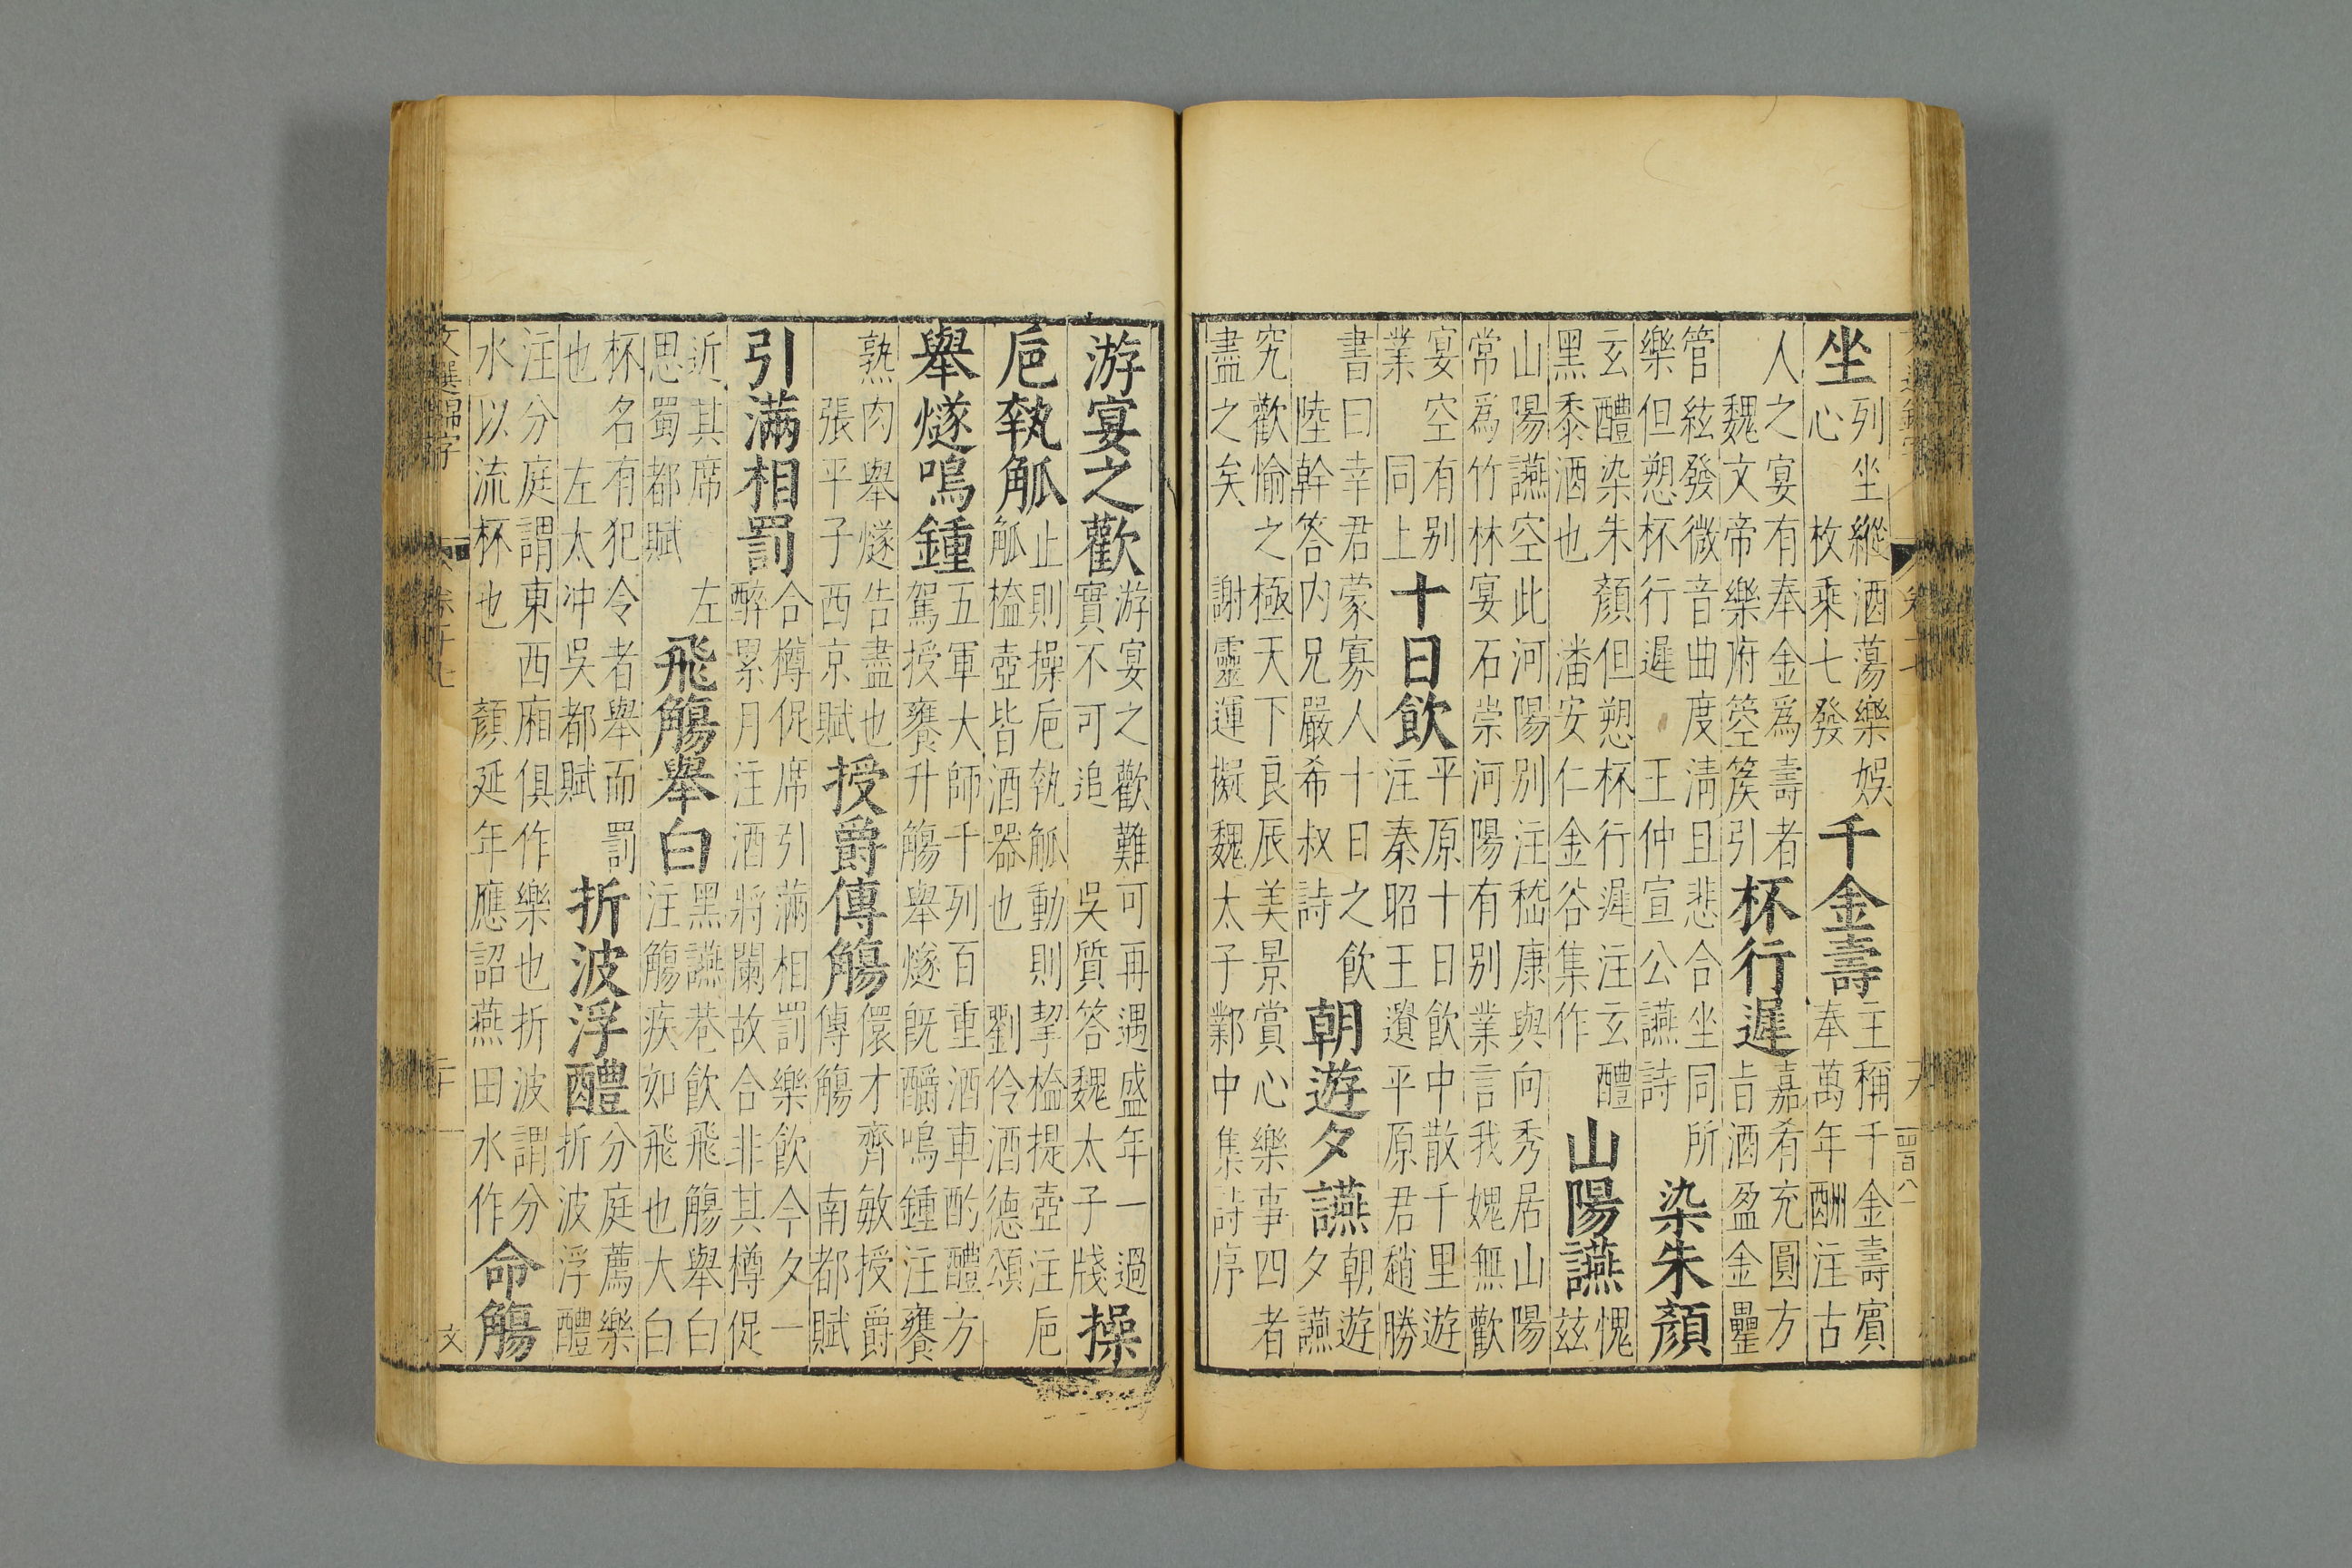 坐列坐縱酒蕩樂娛心 枚乘七發 千金壽主稱千金壽賓奉萬年酬注古
人之宴有奉金爲壽者 魏文帝樂府箜篌引 杯行遲嘉肴充圓方旨酒盈金罍
管絃發微音曲度淸且悲合坐同所樂但愬杯行遲 王仲宣公讌詩 染朱顏
玄醴染朱顏但愬杯行遲注玄醴黑黍酒也 潘安仁金谷集作 山陽讌愧兹
山陽讌空此河陽別注嵇康與向秀居山陽常爲竹林宴石崇河陽有別業言我媿無歡
宴空有別業 同上 十日飲平原十日飲中散千里遊注秦昭王遺平原君趙勝
書曰幸君蒙寡人十日之飲 陸幹答内兄嚴希叔詩 朝遊夕讌朝遊夕讌
究歡愉之極天下良辰美景賞心樂事四者盡之矣 謝靈運擬魏太子鄴中集詩序
四百八
游宴之歡游宴之歡難可再遇盛年一過實不可追 吳質答魏太子牋 操
巵執觚止則操巵執觚動則挈榼提壺注巵觚榼壺皆酒器也 劉伶酒德頌
舉燧鳴鍾五軍大師千列百重酒車酌醴方駕授饔升觴舉燧旣釂鳴鍾注饔
熟肉舉燧告盡也 張平子西京賦 授爵傳觴儇才齊敏授爵傳觴 南都賦
引滿相罰合樽促席引滿相罰樂飲今夕一醉累月注酒將闌故合非其樽促
近其席 左思蜀都賦 飛觴舉白黑讌巷飲飛觴舉白注觴疾如飛也大白
杯名有犯令者舉而罰也 左太冲吳都賦 折波浮醴分庭薦樂折波浮醴
注分庭謂東西廂俱作樂也折波謂分水以流杯也 顏延年應詔燕田水作 命觴
文選錦字 卷十七 文